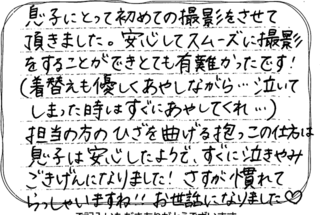 息子にとって初めての撮影をさせて
頂きました。安心してスムーズに撮影
をすることができとても有難かったです!
(着替えも優しくあやしながら…泣いて
しまった時はすぐにあやしてくれ…)
担当の方のひざを曲げる抱っこの仕方は
息子は安心したようで、すぐに泣きやみ
ごきげんになりました! さすが慣れて
らっしゃいますね!! お世話になりました♡